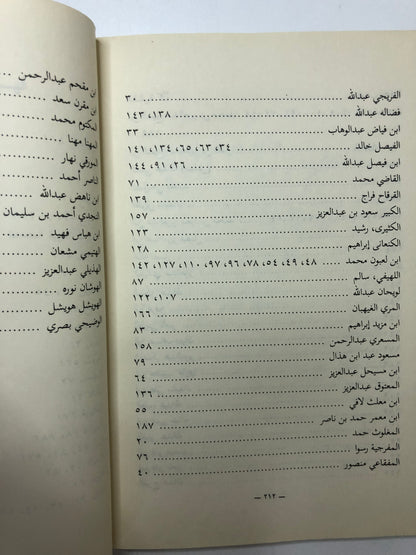 الفريجي عبدالله .......... ٣٠
فضاله عبدالله .......... ١٣٨، ١٤٣
ابن فياض عبدالوهاب .......... ٣٣
الفيصل خالد .......... ٣٤، ٦٣، ٦٥، ١٣٤، ١٤١
ابن فيصل عبدالله .......... ٢٦، ٩١، ١٤٤
القاضي محمد .......... ٧١
القرقاح فراج .......... ١٣٩
الكبير سعود بن عبدالعزيز .......... ١٥٧
الكثيري، رشيد .......... ١٢٣
الكنعاني إبراهيم .......... ١٢٨
ابن لعبون محمد .......... ٤٨، ٤٩، ٥٤، ٧٨، ٩٦، ٩٧، ١١٠، ١٢٧، ١٤٢
اللهيفي، سالم .......... ٨٧
لويحان عبدالله .......... ١٠٧، ١٢٢
المري الغيهبان .......... ١٦٦
ابن مزيد إبراهيم .......... ٨٣
المسعري عبدالرحمن .......... ١٥٨
مسعود عبد ابن هذال .......... ٧٩
ابن مسيحل عبدالعزيز .......... ٦٤
المعتوق عبدالعزيز .......... ١٣٦
ابن معلث لافي .......... ٥٥
ابن معمر حمد بن ناصر .......... ١٨٧
المغلوث حمد .......... ٢٠
المفرجية رسوا .......... ٧٦
المفقاعي منصور .......... ٤٠
— ٢١٢ —
ابن مقحم عبدالرحمن
ابن مقرن سعد
المكتوم محمد
المهنا مهنا
المورقي نهار
الناصر أحمد
ابن ناهض عبدالله
النجدي أحمد بن سليمان
ابن هباس فهيد
الهتيمي مشعان
الهذيلي عبدالعزيز
الهوشان نوره
الهويشل هويشل
الوضيحي بصري